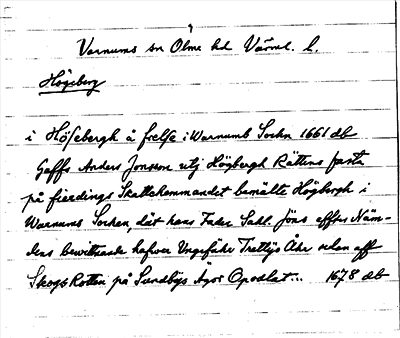 Varnums sn Ölme hd Värml. l.
Högeberg
i Höfebergh å frelse i Warnumb Sochn 1661 db
Gaffs Anders Jonsson utj Högbergh Rättens fasta
på fierdings Skattehemmandet bemälte Högbergh i
Warnums Sochen, dät hans Fader Sahl. Jöns effter Näm-
dens bewittnande hafwer Ungefähr Trettijs Åhr sedan aff
Skogs Rotten på Sundbÿs Ägor Opodlat... 1678 db